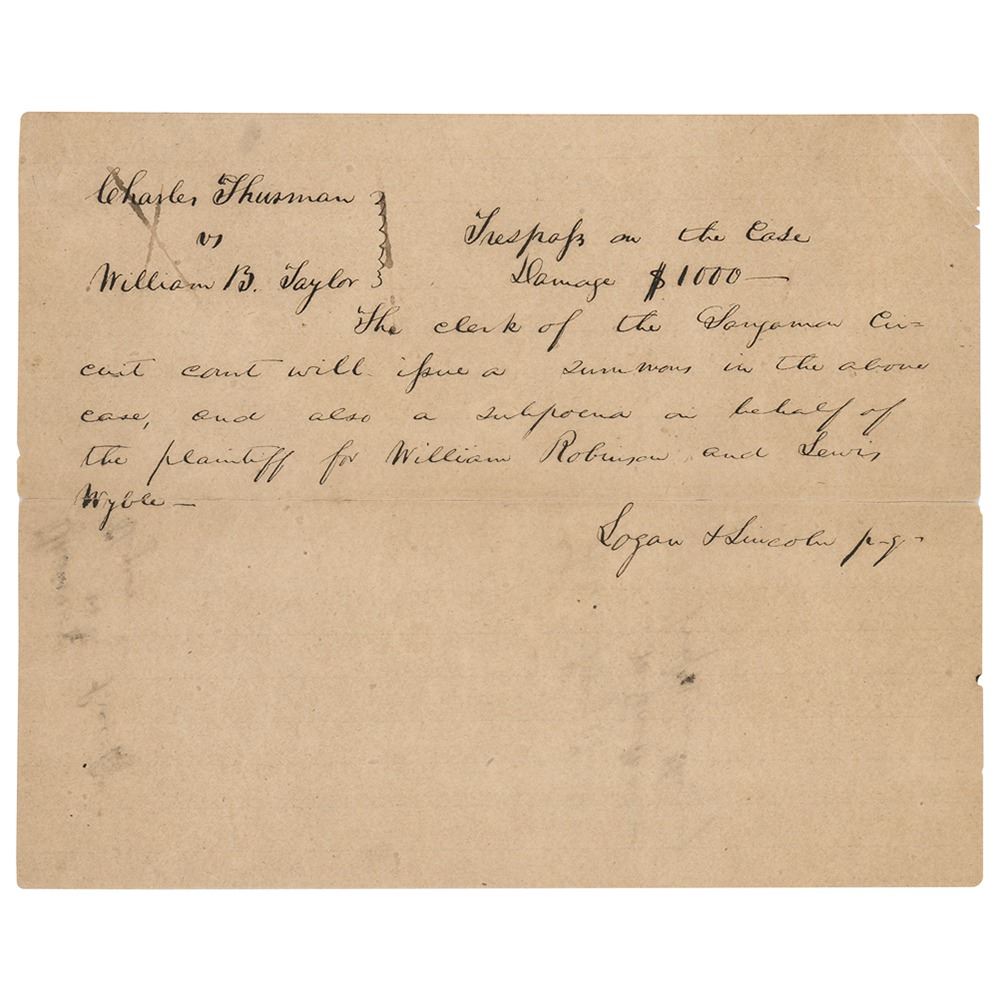 Charles Thurman
vs
William B. Taylor
Trespass on the Case
Damage $1000—
The clerk of the Sangamon Cir=
cuit court will issue a summons in the above
case, and also a subpoena on behalf of
the plaintiff for William Robinson and Lewis
Wyble —
Logan & Lincoln p.q.